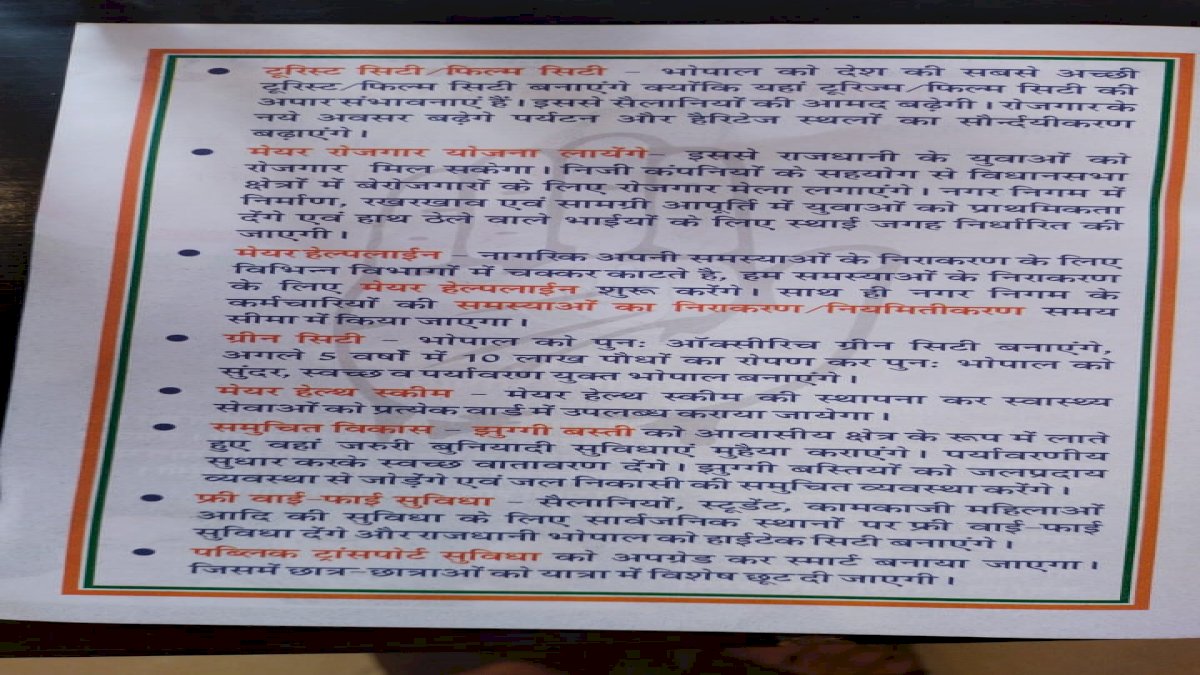 • टूरिस्ट सिटी/फिल्म सिटी – भोपाल को देश की सबसे अच्छी
टूरिस्ट/फिल्म सिटी बनाएंगे क्योंकि यहां टूरिज्म/फिल्म सिटी की
अपार संभावनाएं हैं। इससे सैलानियों की आमद बढ़ेगी। रोजगार के
नये अवसर बढ़ेगे पर्यटन और हैरिटेज स्थलों का सौर्न्दयीकरण
बढ़ाएंगे।
• मेयर रोजगार योजना लायेंगे– इससे राजधानी के युवाओं को
रोजगार मिल सकेगा। निजी कंपनियों के सहयोग से विधानसभा
क्षेत्रों में बेरोजगारों के लिए रोजगार मेला लगाएंगे। नगर निगम में
निर्माण, रखरखाव एवं सामग्री आपूर्ति में युवाओं को प्राथमिकता
देंगे एवं हाथ ठेले वाले भाईयों के लिए स्थाई जगह निर्धारित की
जाएगी।
• मेयर हेल्पलाईन – नागरिक अपनी समस्याओं के निराकरण के लिए
विभिन्न विभागों में चक्कर काटते है, हम समस्याओं के निराकरण
के लिए मेयर हेल्पलाईन शुरू करेंगे। साथ ही नगर निगम के
कर्मचारियों की समस्याओं का निराकरण/नियमितीकरण समय
सीमा में किया जाएगा।
• ग्रीन सिटी – भोपाल को पुनः ऑक्सीरिच ग्रीन सिटी बनाएंगे,
अगले 5 वर्षों में 10 लाख पौधों का रोपण कर पुनः भोपाल को
सुंदर, स्वच्छ व पर्यावरण युक्त भोपाल बनाएंगे।
• मेयर हेल्थ स्कीम – मेयर हेल्थ स्कीम की स्थापना कर स्वास्थ्य
सेवाओं को प्रत्येक वार्ड में उपलब्ध कराया जायेगा।
• समुचित विकास – झुग्गी बस्ती को आवासीय क्षेत्र के रूप में लाते
हुए वहां जरुरी बुनियादी सुविधाएं मुहैया कराएंगे। पर्यावरणीय
सुधार करके स्वच्छ वातावरण देंगे। झुग्गी बस्तियों को जलप्रदाय
व्यवस्था से जोड़ेगे एवं जल निकासी की समुचित व्यवस्था करेंगे।
• फ्री वाई–फाई सुविधा – सैलानियों, स्टूडेंट, कामकाजी महिलाओं
आदि की सुविधा के लिए सार्वजनिक स्थानों पर फ्री वाई–फाई
सुविधा देंगे और राजधानी भोपाल को हाईटेक सिटी बनाएंगे।
• पब्लिक ट्रांसपोर्ट सुविधा को अपग्रेड कर स्मार्ट बनाया जाएगा।
जिसमें छात्र–छात्राओं को यात्रा में विशेष छूट दी जाएगी।